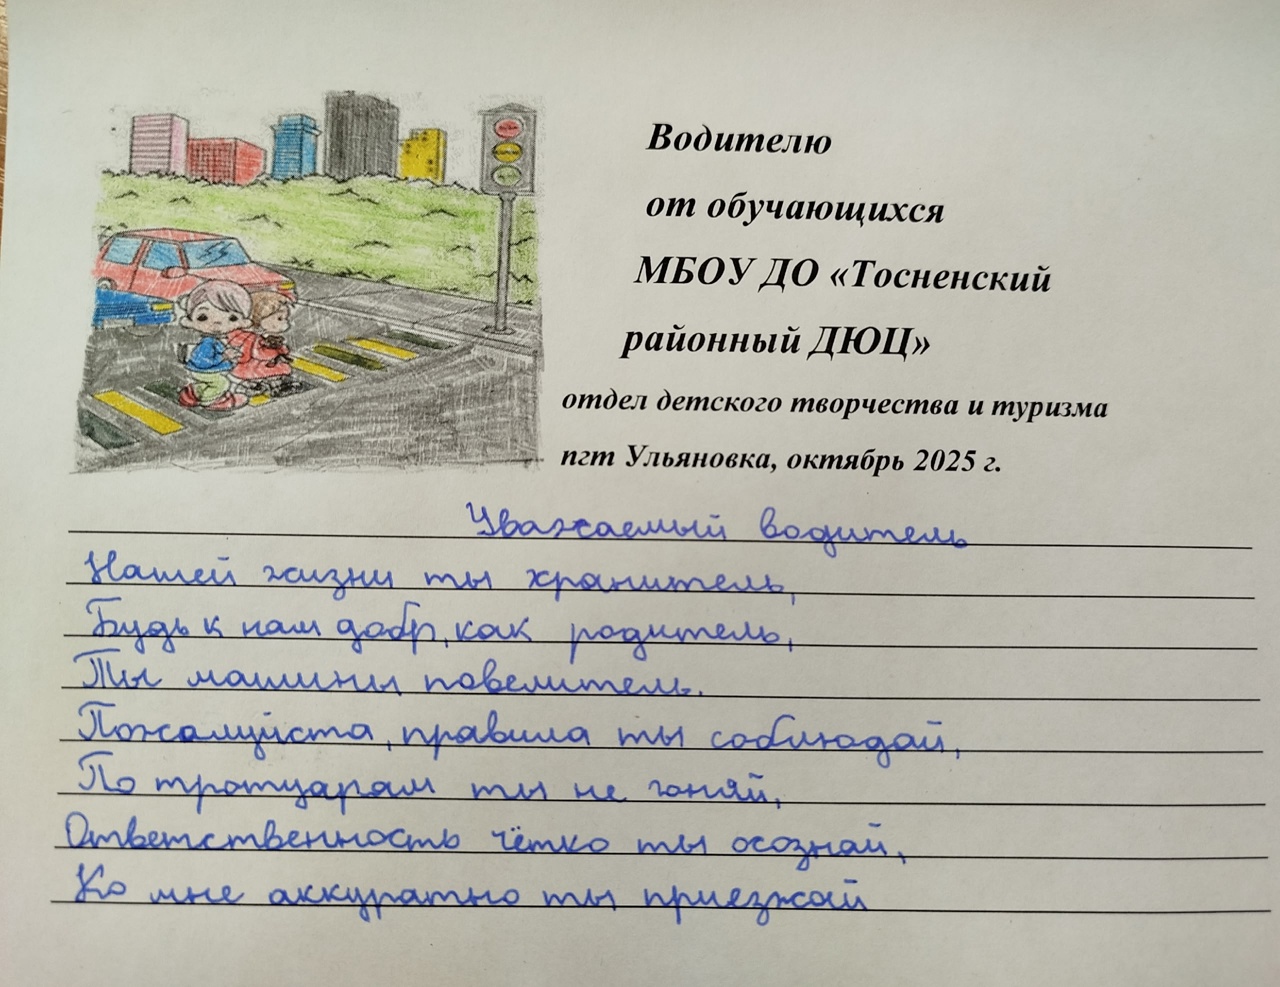 Водителю
от обучающихся
МБОУ ДО «Тосненский
районный ДЮЦ»
отдел детского творчества и туризма
пгт Ульяновка, октябрь 2025 г.
Уважаемый водитель
Нашей жизни ты хранитель,
Будь к нам добр, как родитель,
Ты машины повелитель.
Пожалуйста, правила ты соблюдай,
По тротуарам ты не гоняй,
Ответственность чётко ты осознай,
Ко мне аккуратно ты приезжай